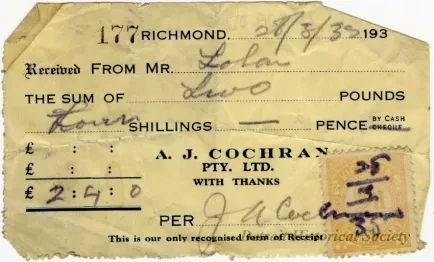 177 RICHMOND, 28/8/38 193
Received FROM MR. Lolan
THE SUM OF Two POUNDS
Four SHILLINGS — PENCE BY CASH CHEQUE
£ : :
£ : :
£ 2 : 4 : 0
A. J. COCHRAN
PTY. LTD.
WITH THANKS
PER J A Cochran
This is our only recognised form of Receipt
Historical Society